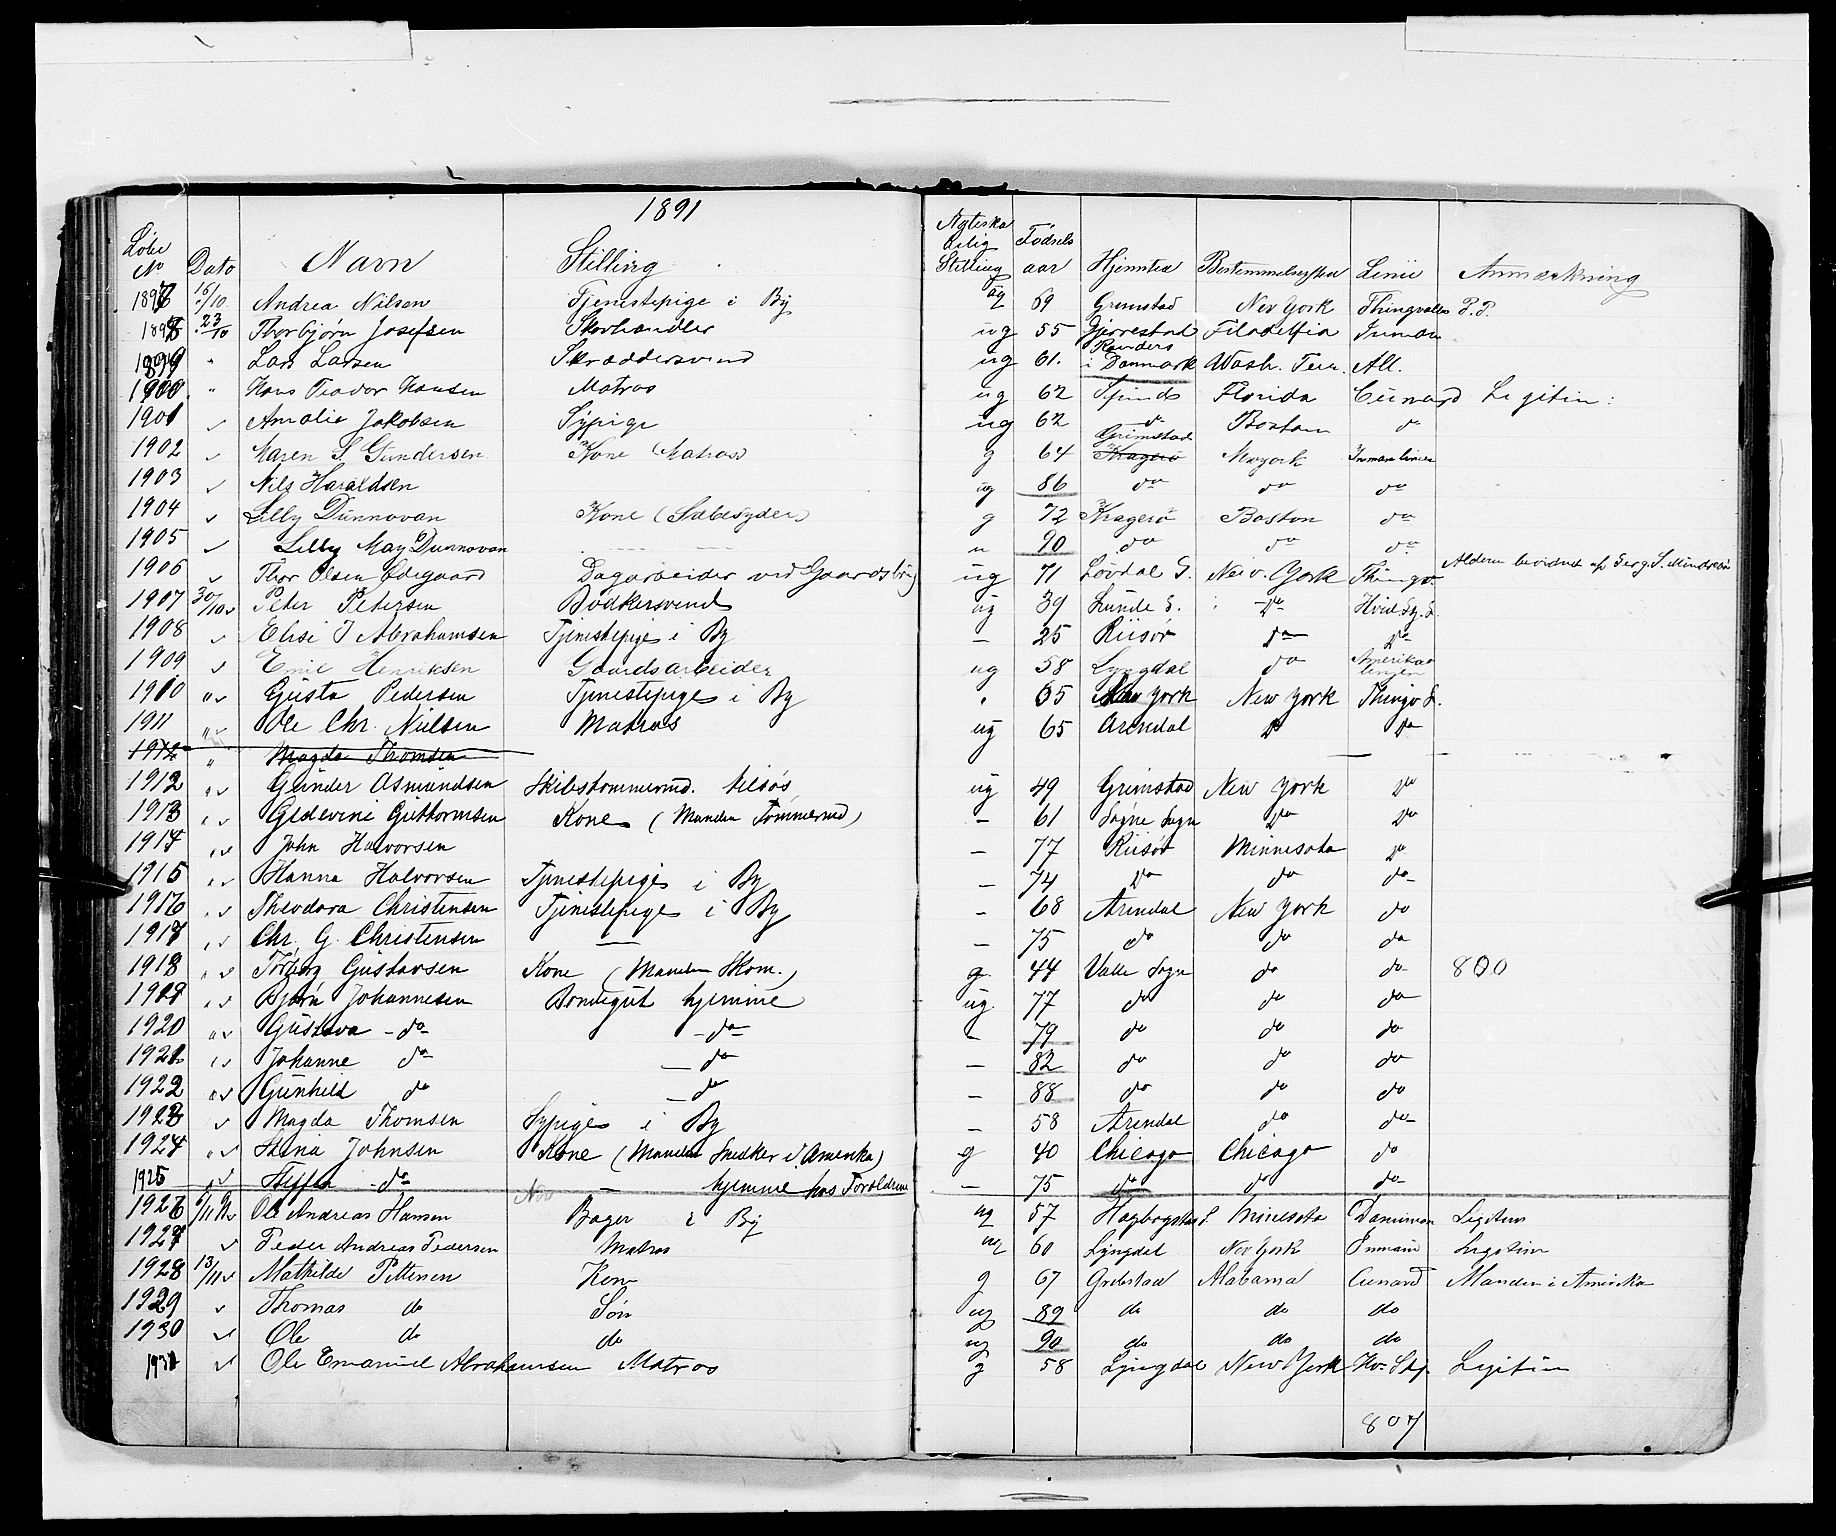 1891
Løbe No Dato Navn Stilling Ægteskabelig Stilling Fødsels aar Hjemsted Bestemmelsessted Linie Anmærkning
1897 16/10 Andrea Nilsen Tjenestepige i By ug 69 Grimstad New York Thingvalla P.P.
1898 23/10 Thorbjørn Josefsen Skohandler ug 55 Gjerrestad Filadelfia Inman
1899 " Lars Larsen Skræddersvend ug 61. Randers i Danmark Wash. Terr. All.
1900 " Hans Teodor Hansen Matros ug 62 Spinds Florida Cunard Legitim:
1901 Amalie Jakobsen Sypige ug 62 do Boston do
1902 Maren S. Gundersen Kone (Matros) g 64 Grimstad Kragerø Newyork Inman linien
1903 Nils Haraldsen ug 86 do do do
1904 Lilly Dunnovan Kone (Sæbesyder) g 72 Kragerø Boston do
1905 Lilly May Dunnovan u 90 do do do
1906 Thor Olsen Ødegaard Dagarbeider ved Gaardsbrug ug 71 Løvdal S. New York Thingv. Alderen bevidnet af
1907 30/10 Peter Petersen Bødkersvend ug 39 Lunde S. do Hvid St. L.
1908 Elise J Abrahamsen Tjenestepige i By – 25 Riisør do do
1909 Emil Henriksen Gaardsarbeider ug 58 Lyngdal do Amerika linjen
1910 " Gusta Pedersen Tjenestepige i By " 65 New York New York Thingv L.
1911 " Ole Chr. Nielsen Matros ug 65 Arendal do do
1912 " Magda Thomsen
1912 " Gunder Asmundsen Skibstømmermd. tilsøs ug 49 Grimstad New York do
1913 " Gedevine Guttormsen Kone (Manden Tømmermd) – 61 Søgne Sogn do do
1914 " John Halvorsen – 77 Riisør Minnesota do
1915 " Hanna Halvorsen Tjenestepige i By – 74 do do do
1916 " Theodora Christensen Tjenestepige i By – 68 Arendal New York do
1917 " Chr. G. Christensen — – 75 do do do
1918 " Torborg Gustavsen Kone (Manden Skom.) g. 44 Valle Sogn do do 800
1919 " Bjørn Johannesen Bondegut hjemme ug. 77 do do do
1920 " Gustava do do – 79 do do do
1921 " Johanne do do – 82 do do do
1922 " Gunhild do do – 88 do do do
1923 Magda Thomsen Sypige i By – 58 Arendal do do
1924 " Stina Johnsen Kone (Manden Snedker i Amerika) g 40 Chicago Chicago do
1925 " do — hjemme hos Forældrene – 75 do do do
Nov
1926 6/11 Ole Andreas Hansen Bager i By ug 57 Hægbostad S. Minesota Daminion Legitim
1927 Peder Andreas Pedersen Matros ug 60 Lyngdal New York Enman Legitim
1928 13/11 Mathilde Pettersen Kone g 67 Grebstad Alabama Cunard Manden i Amerika
1929 Thomas do Søn ug 89 do do do
1930 Ole do do ug 90 do do do
1931 Ole Emanuel Abrahamsen Matros g 58 Lyngdal New York Hv. Stj. Legitim
807